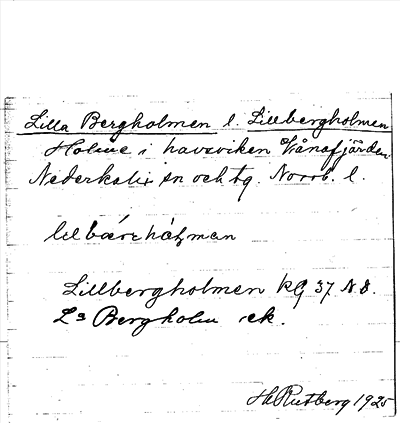 Lilla Bergholmen l. Lillbergholmen
Holme i havsviken Vånafjärden
Nederkalix sn och tg. Norrb. l.
Lillbergholmen kg 37 N.O.
La Bergholm ek.
H. Rutberg 1925